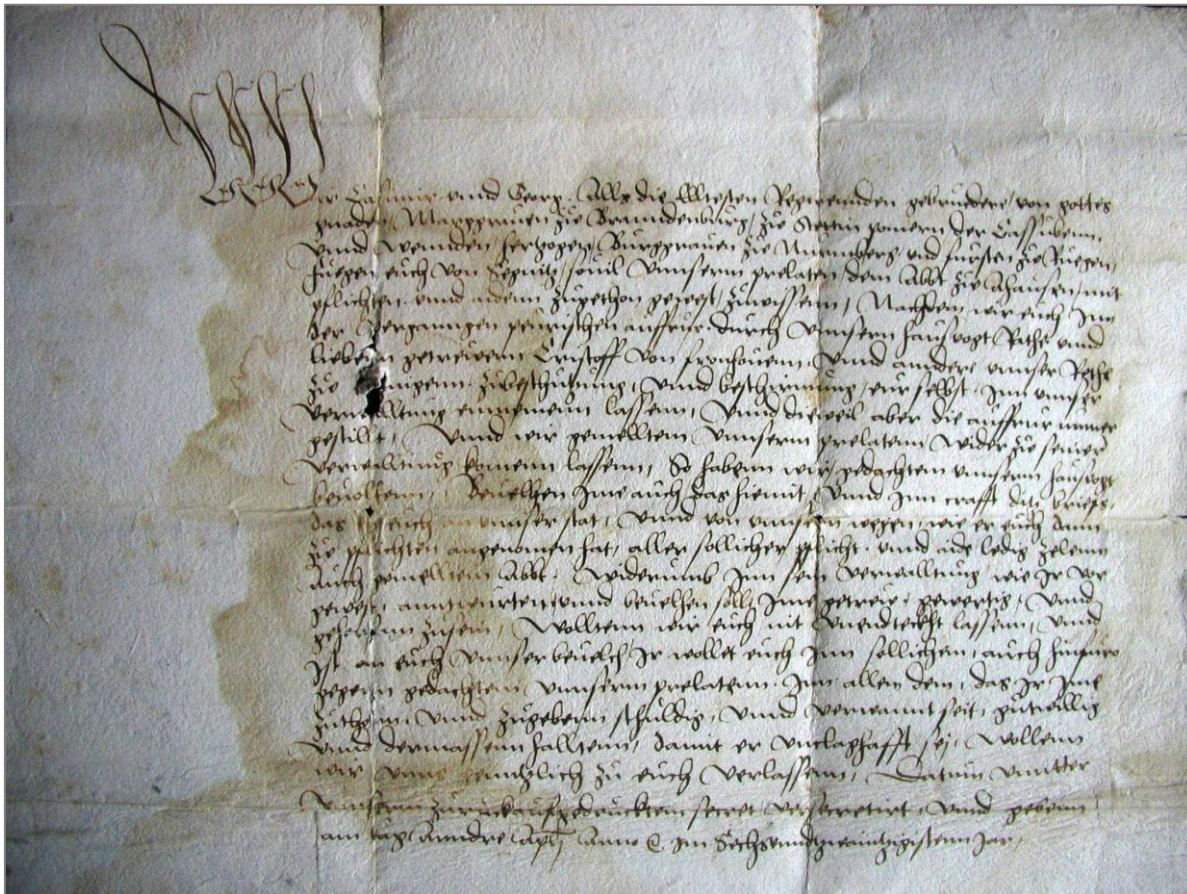 Wir Casimir vnnd Georg Alls die Elltesten Regirenden gebrudere von gottes
gnaden Marggrauen zu Branndenburg zu Stettin pomern der Cassubenn
vnnd Wennden hertzogen Burggrauen zu Nurmberg vnd fursten zu Rugen
fuegen euch von Segnitz souil vnnserm prelaten dem Abbt zu Ahausen mit
pflichten vnnd aidenn zugethon gewest zuwissenn Nachdem wir euch Inn
der vergangen peurischen auffrur durch vnnsern haus vogt Rethe vnnd
liebenn getrewenn Cristoff von vnnd andere vnnser Rethe
zu zubeschutzung vnnd beschirmung eur selbst Inn vnnser
verwalltung einnemenn lassenn vnnd dieweil aber die auffrur nuner
gestillt vnnd wir gemelltem vnnserm prelatenn wider zu seiner
verwalltung komenn lassenn So habenn wir gedachtem vnnserm haus vogt
beuolhenn Beuelhen Ime auch das hiemit vnnd Inn crafft ditz briefs
das er euch an vnnser stat vnnd von vnnsern wegen wie er euch dann
zu pflichten angenomen hat aller sollicher pflicht vnnd aide ledig zelenn
Auch gemelltem Abbt widerumb Inn sein verwalltung wie Ir vor
gewest anntwurten vnnd beuelhen soll Ime getrew gewertig vnnd
gehorsam zusein Wolltenn wir euch nit vnentdeckht lassenn vnnd
Ist an euch vnnser beuelch Ir wollet euch Inn sollichen auch hinfuro
gegenn gedachtem vnnserm prelatenn Inn allem dem das Ir Ime
zuthun vnnd zugebenn schuldig vnnd verwannt seit gutwillig
vnnd dermassenn halltenn damit er vnclaghafft sej Wollenn
wir vnns genntzlich zu euch verlassenn Datum vnntter
vnnserm zuruckaufgedrucktem secret versecretirt vnnd gebenn
am tag Anndre Anno Im Sechsvnndzwainntzigistenn Jar